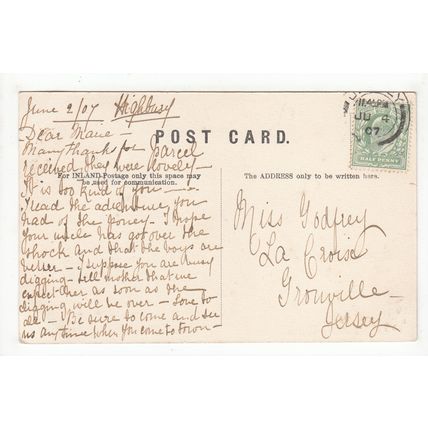 June 2/07 Highbury
Dear Maue —
Many thanks for parcel
received, they were lovely —
It is too kind of you —
I read the adventure you
had of the poney — I hope
your uncle has got over the
shock and that the boys are
better — I suppose you are busy
digging — tell mother that we
expect her as soon as the
digging will be over — Love to
all — Be sure to come and see
us any time when you come to town —
POST CARD.
For INLAND Postage only this space may
be used for communication.
The ADDRESS only to be written here.
Miss Godfrey
La Croise
Grouville —
Jersey
JERSEY
11.45 PM
JU 4
07
HALF PENNY